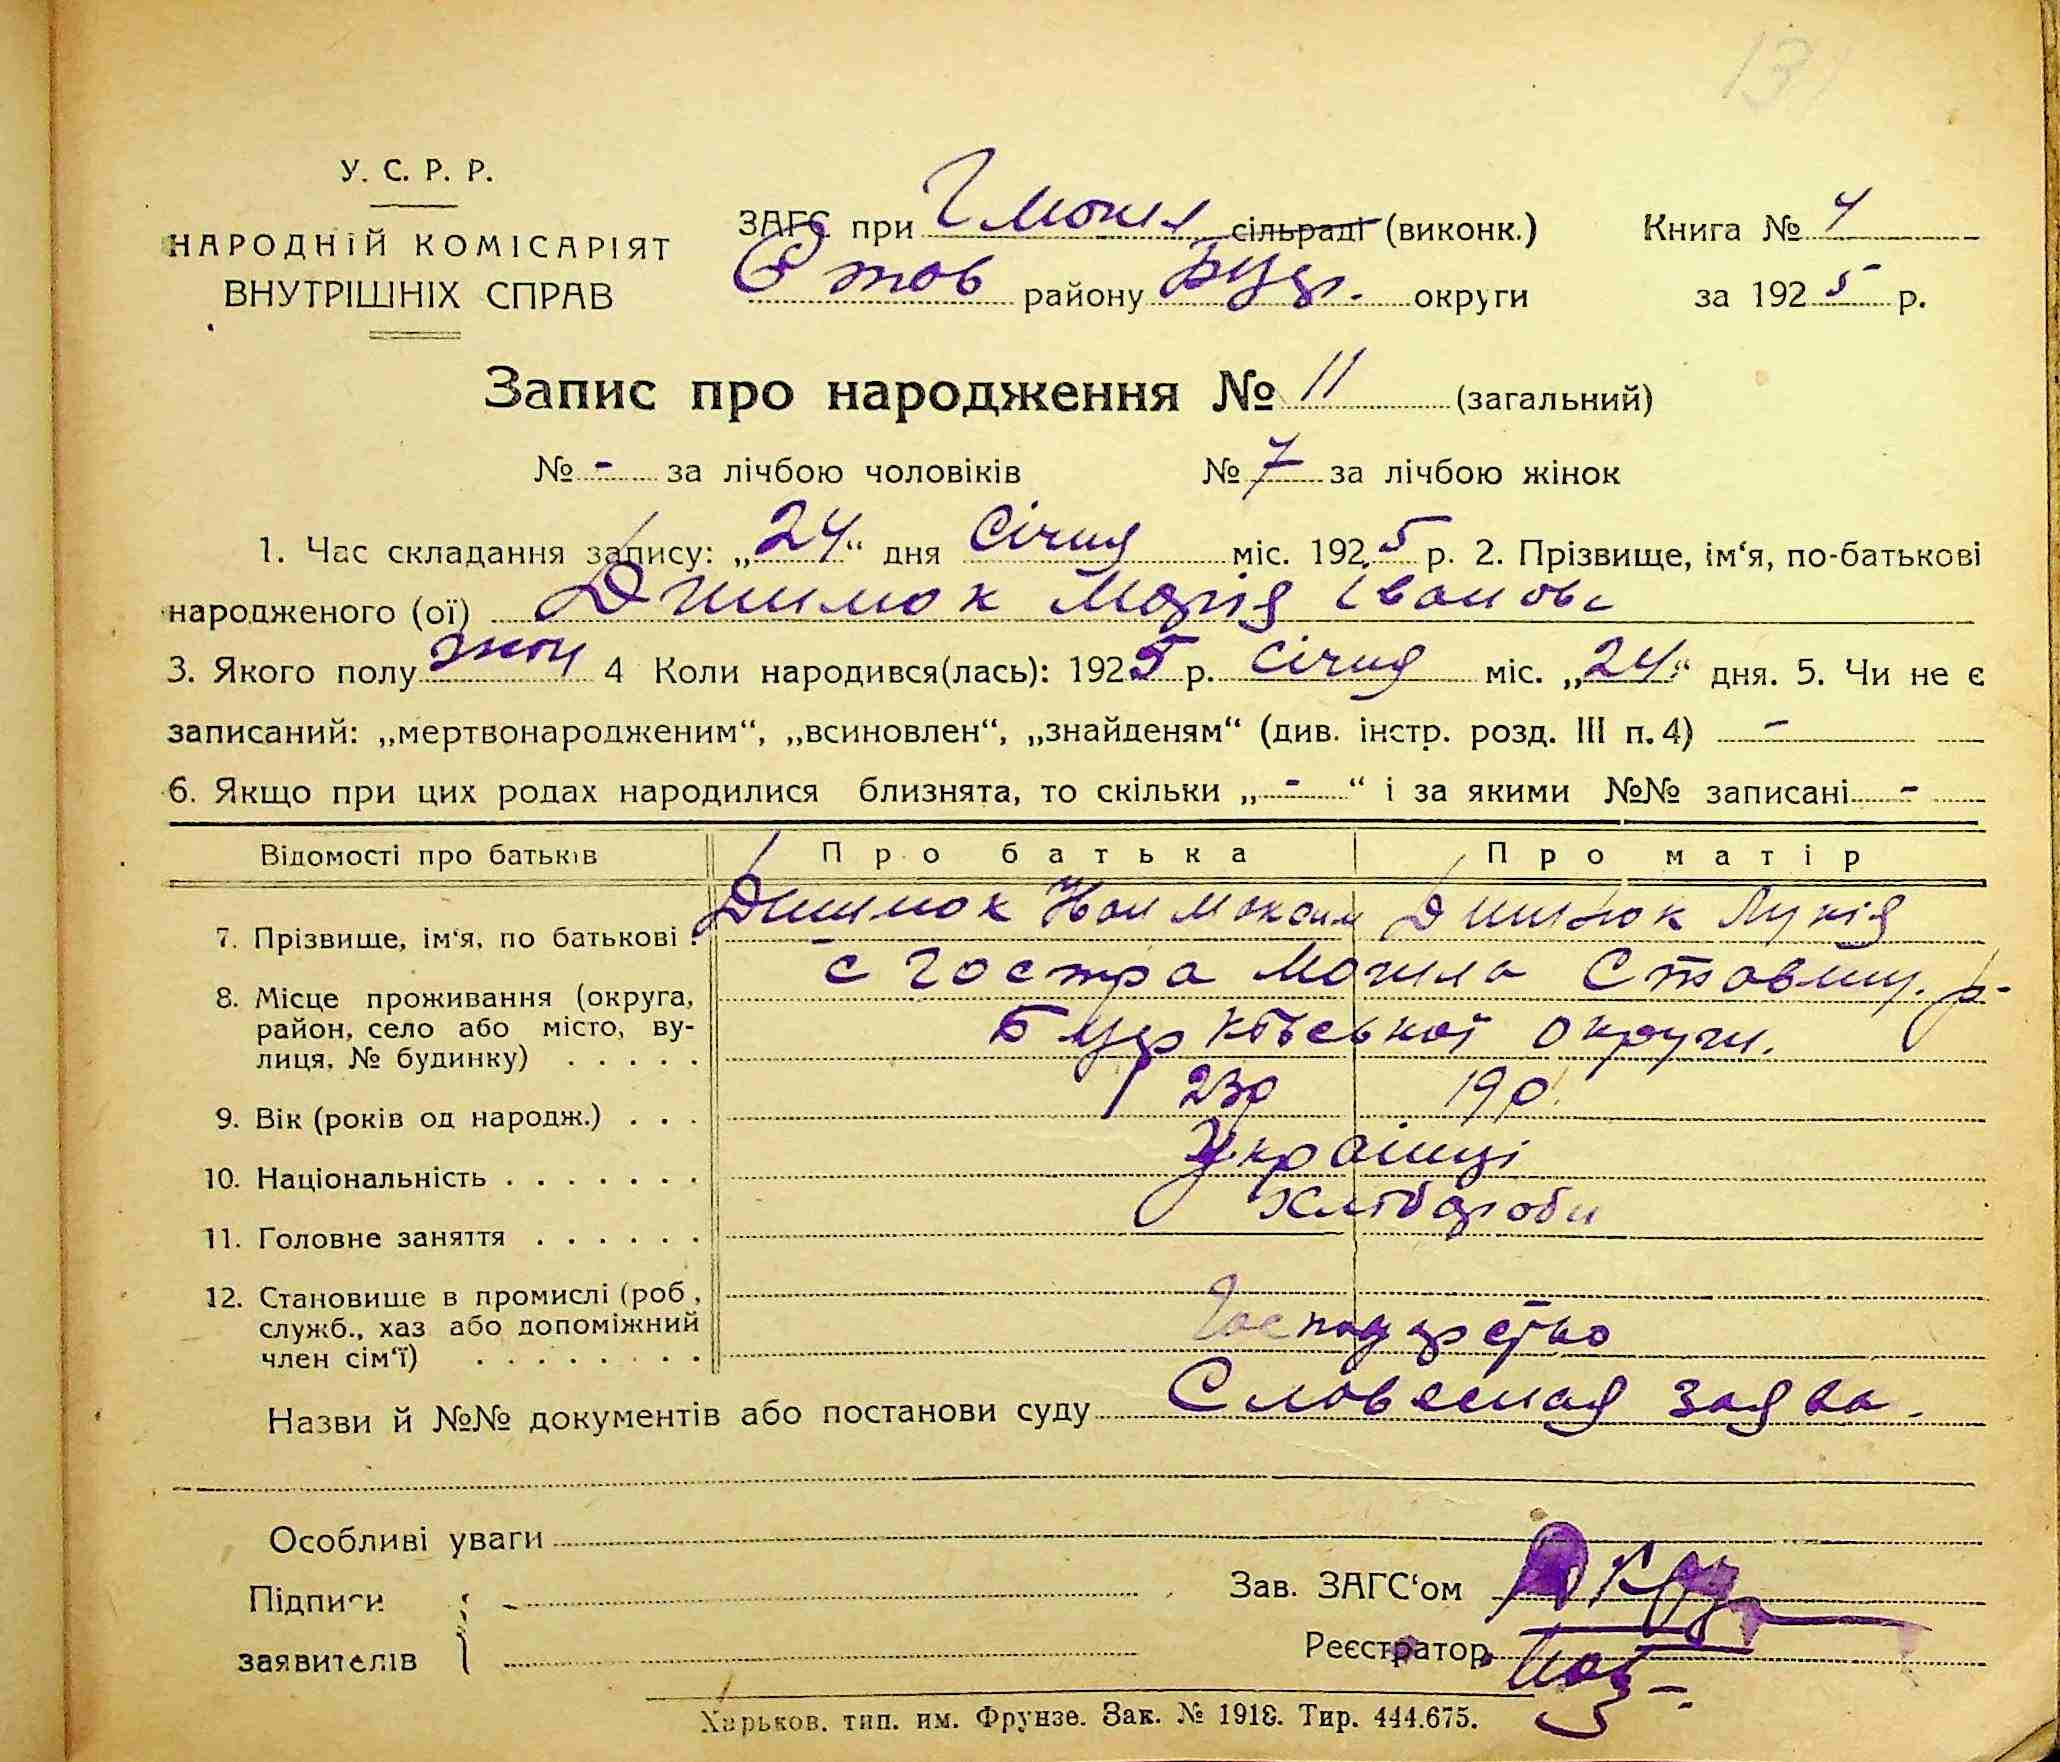 13
У. С. Р. Р.
НАРОДНІЙ КОМІСАРІЯТ
ВНУТРІШНІХ СПРАВ
ЗАГС при Гмогил сільраді (виконк.)
Став району Бцр. округи
Книга № 4
за 1925 р.
Запис про народження № 11 (загальний)
№ - за лічбою чоловіків № 7 за лічбою жінок
1. Час складання запису: „24“ дня Січня міс. 1925 р. 2. Прізвище, ім‘я, по-батькові
народженого (ої) Дишмок Марія Іванов
3. Якого полу жін 4 Коли народився(лась): 1925 р. Січня міс. „24“ дня. 5. Чи не є
записаний: „мертвонародженим“, „всиновлен“, „знайденям“ (див. інстр. розд. III п. 4) -
6. Якщо при цих родах народилися близнята, то скільки „-“ і за якими №№ записані -
Відомості про батьків Про батька Про матір
7. Прізвище, ім‘я, по батькові . Дишмок Іван Максим Дишмок Лукія
8. Місце проживання (округа, район, село або місто, вулиця, № будинку) . . . . . с Гостра Могила Ставищ. р-
Бцрківської округи.
9. Вік (років од народж.) . . . 23р 19р.
10. Національність . . . . . . . Українці
11. Головне заняття . . . . . . Хлібороби
12. Становище в промислі (роб, служб., хаз або допоміжний член сім‘ї) . . . . . . . . Господарство
Назви й №№ документів або постанови суду Словесная заява.
Особливі уваги
Підписи
заявителів
Зав. ЗАГС‘ом
Реєстратор
Харьков. тип. им. Фрунзе. Зак. № 1918. Тир. 444.675.